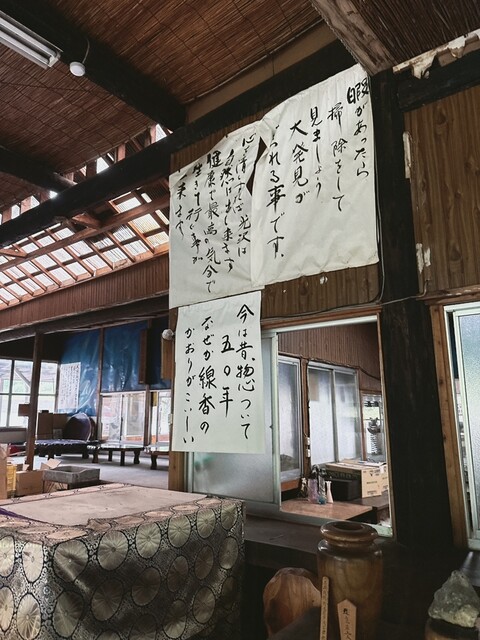 暇があったら
掃除をして
見ましょう
大発見が
られる事です。
ば光沢は
自然に出て来ます
健康で最高の気分で
生きて行く事が
来ます
今は昔、物心ついて
五〇年
なぜか線香の
かおりがこいしい